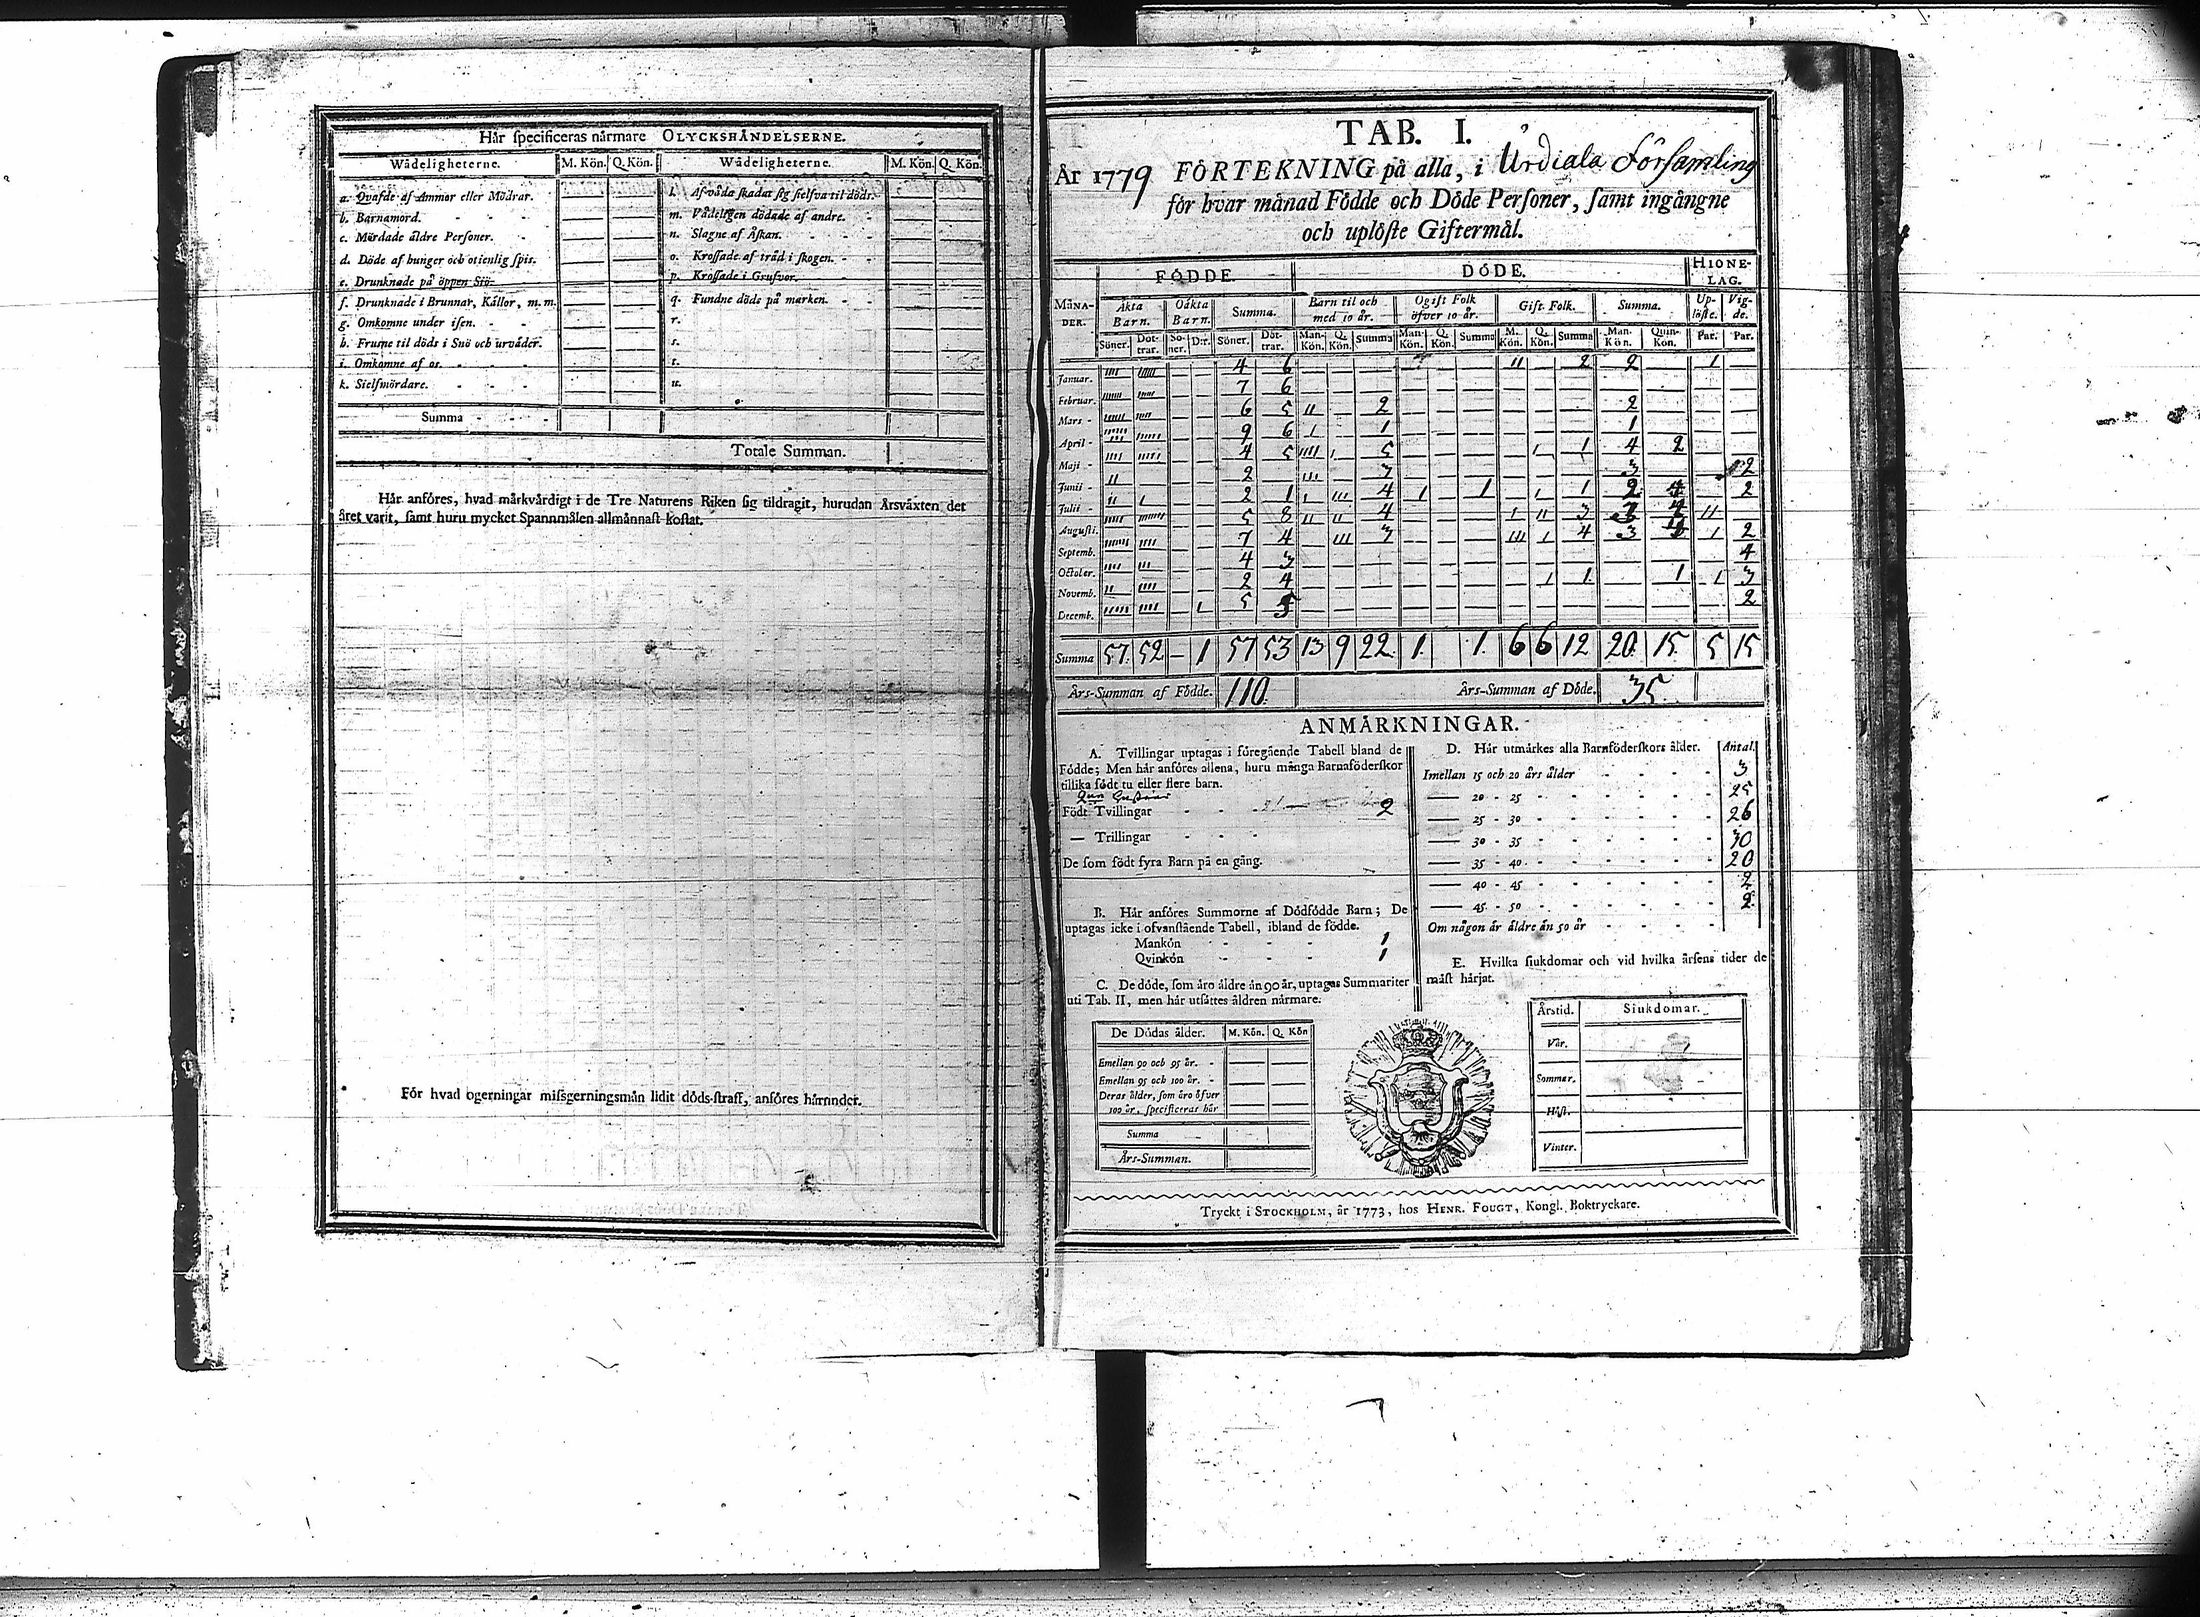 Här specificeras närmare OLYCKSHÄNDELSERNE.
Wådeligheterne. M. Kön. Q. Kön. Wådeligheterne. M. Kön. Q. Kön.
a. Qvafde af Ammor eller Mödrar.
b. Barnamord.
c. Mördade äldre Personer.
d. Döde af hunger och otienlig spis.
e. Drunknade på öppen Siö-
f. Drunknade i Brunnar, Källor, m. m.
g. Omkomne under isen.
h. Frusne til döds i Snö och urväder.
i. Omkomne af os.
k. Sielfmördare.
l. Af våda skadat sig sielfva til döds.
m. Vådeligen dödade af andre.
n. Slagne af Åskan.
o. Krossade af träd i skogen.
p. Krossade i Grufvor.
q. Fundne döds på marken.
r.
s.
t.
u.
Summa
Totale Summan.
Här anföres, hvad märkvärdigt i de Tre Naturens Riken sig tildragit, hurudan Årsväxten det
året varit, samt huru mycket Spannmålen allmännast kostat.
För hvad ogerningar missgerningsmän lidit döds-straff, anföres härunder.
TAB. I.
År 1779 FÖRTEKNING på alla, i Urdiala Församling
för hvar månad Födde och Döde Personer, samt ingångne
och uplöste Giftermål.
FÖDDE. DÖDE. HIONE-
LAG.
MÅNA-
DER. Äkta
Barn. Oäkta
Barn. Summa. Barn til och
med 10 år. Ogift Folk
öfver 10 år. Gift Folk. Summa. Up-
löste. Vig-
de.
Söner. Döt-
trar. Sö-
ner. D:r. Söner. Döt-
trar. Man-
Kön. Q.
Kön. Summa Man-
Kön. Q.
Kön. Summa M.
Kön. Q.
Kön. Summa Man.
Kön. Quin-
Kön. Par. Par.
Januar. 4 6 2 2 1
Februar. 7 6
Mars 6 5 2 2
April 9 6 1 1
Maji 4 5 5 1 4 2
Junii 2 3 3 2
Julii 2 1 4 1 1 2 2
Augusti. 5 8 4 3
Septemb. 7 4 3 4 3 2
October. 4 3 4
Novemb. 2 4 1 1 3
Decemb. 5 2
Summa 57. 52 — 1 57 53 13 9 22 1. 1. 6 6 12 20. 15. 5 15
Års-Summan af Födde. 110. Års-Summan af Döde. 35
ANMÄRKNINGAR.
A. Tvillingar uptagas i föregående Tabell bland de
Födde; Men här anföres allena, huru många Barnaföderskor
tillika födt tu eller flere barn.
Födt Tvillingar 2
— Trillingar
De som födt fyra Barn på en gång.
B. Här anföres Summorne af Dödfödde Barn; De
uptagas icke i ofvanstående Tabell, ibland de födde.
Mankön 1
Qvinkön 1
C. De döde, som äro äldre än 90 år, uptagas Summariter
uti Tab. II, men här utsättes åldren närmare.
De Dödas ålder. M. Kön. Q. Kön
Emellan 90 och 95 år.
Emellan 95 och 100 år.
Deras ålder, som äro öfver
100 år, specificeras här
Summa
Års-Summan.
D. Här utmärkes alla Barnföderskors ålder. Antal.
Imellan 15 och 20 års ålder 3
— 20 - 25 25
— 25 - 30 26
— 30 - 35 30
— 35 - 40 20
— 40 - 45 2
— 45 - 50 2.
Om någon är äldre än 50 år
E. Hvilka siukdomar och vid hvilka årsens tider de
mäst härjat.
Årstid. Siukdomar.
Vår.
Sommar.
Höst.
Vinter.
Tryckt i STOCKHOLM, år 1773, hos HENR. FOUGT, Kongl. Boktryckare.